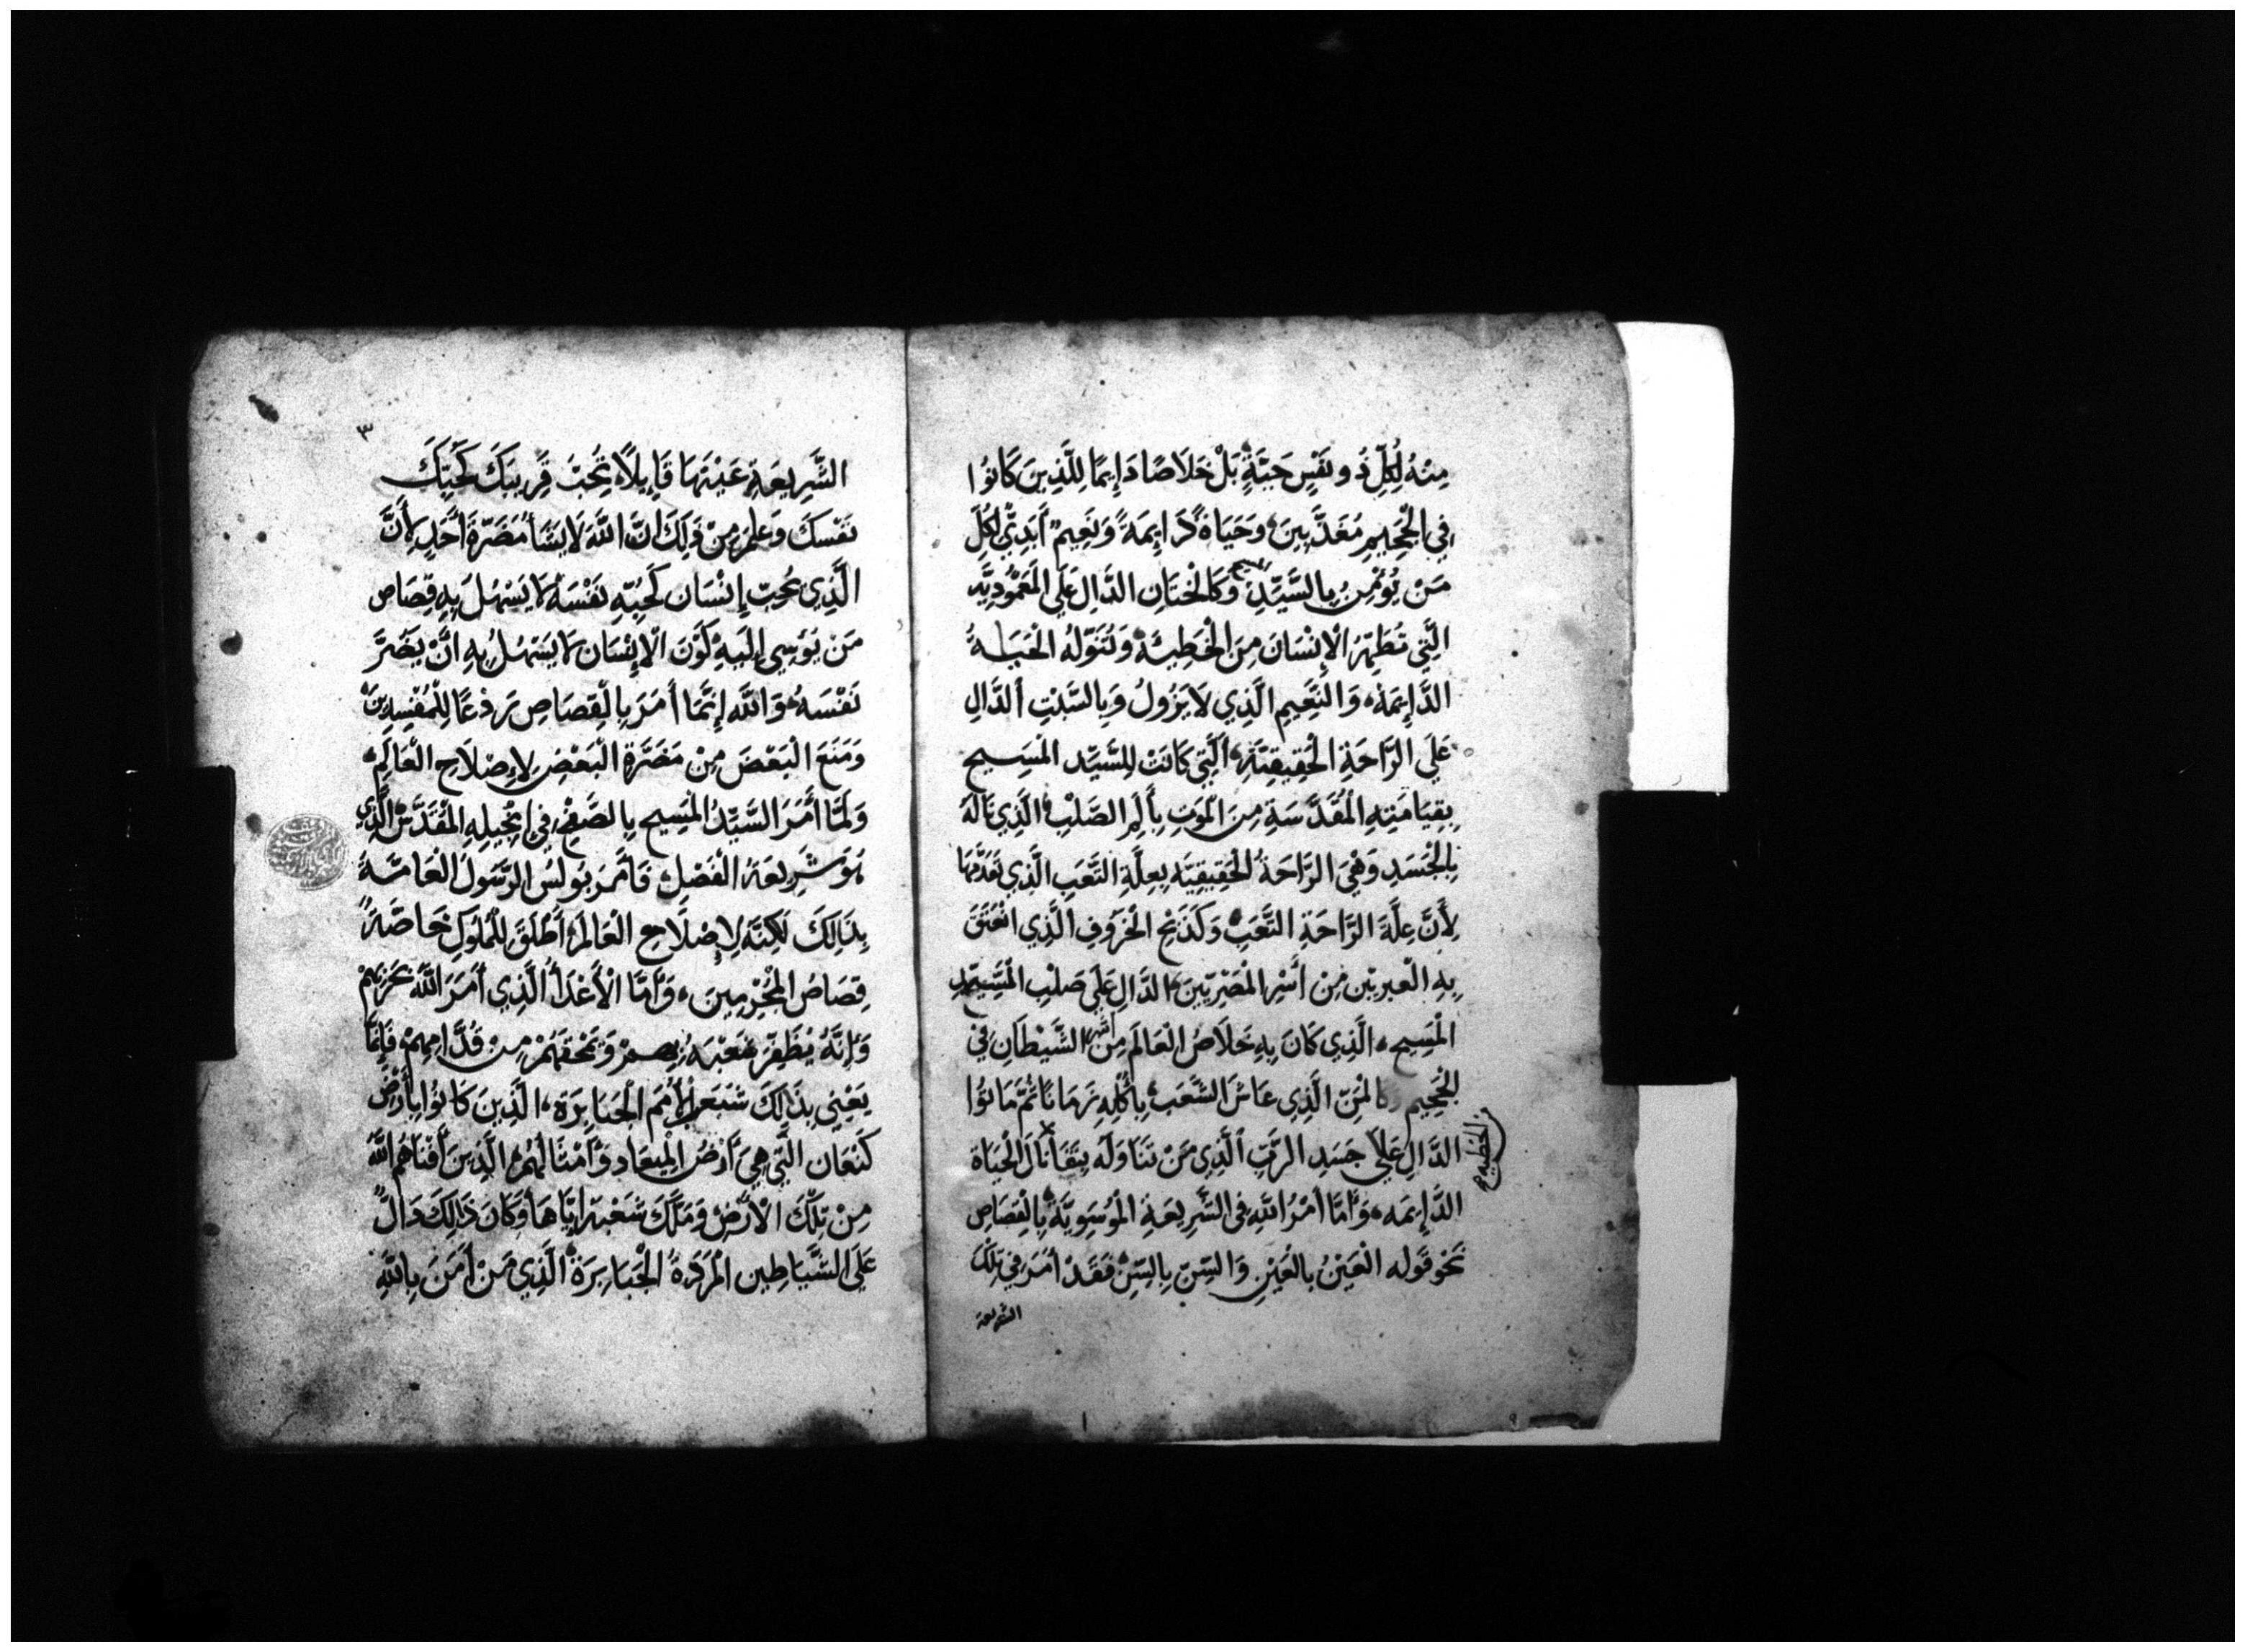 مِنْهُ لِكُلِّ ذُو نَفْسٍ حَيَّةٍ بَلْ خَلَاصًا دَائِمًا لِلَّذِينَ كَانُوا
فِي الْجَحِيمِ مُعَذَّبِينَ وَحَيَاةً دَايِمَةً وَنَعِيمٌ أَبَدِيٌّ لِكُلِّ
مَنْ يُؤْمِنُ بِالسَّيِّدِ المسيح وَكَالْخِتَانِ الدَّالِ عَلَى الْمَعْمُودِيَّه
الَّتِي تُطَهِّرُ الْإِنْسَانَ مِنَ الْخَطِيئَةِ وَتُنَوِّلُهُ الْحَيَاةَ
الدَّايِمَةَ وَالنَّعِيمِ الَّذِي لَا يَزُولُ وَبِالسَّبْتِ الدَّالِ
عَلَى الرَّاحَةِ الْحَقِيقِيَّةِ الَّتِي كَانَتْ لِلسَّيِّدِ الْمَسِيحِ
بِقِيَامَتِهِ الْمُقَدَّسَةِ مِنَ الْمَوْتِ بِأَلَمِ الصَّلْبِ الَّذِي نَالَهُ
بِالْجَسَدِ وَهْيَ الرَّاحَةُ الْحَقِيقِيَّه بِعِلَّةِ التَّعَبِ الَّذِي تَقَدَّمَهَا
لِأَنَّ عِلَّةَ الرَّاحَةِ التَّعَبُ وَكَذَبْحِ الْخَرُوفِ الَّذِي انْعَتَقَ
بِهِ الْعِبْرِيِّينَ مِنْ أَسْرِ الْمَصْرِيِّينَ الدَّالِ عَلَى صَلْبِ السَّيِّدِ
الْمَسِيحِ الَّذِي كَانَ بِهِ خَلَاصُ الْعَالَمِ مِنْ اسر الشَّيْطَانِ فِي
الْجَحِيمِ وَكَالْمَنِّ الَّذِي عَاشَ الشَّعَبُ بِأَكْلِهِ زَمَانًا ثُمَّ مَاتُوا
بالخطيه
الدَّالِ عَلَى جَسَدِ الرَّبِّ الَّذِي مَنْ تَنَاوَلَه بِنَقَا نَالَ الْحَيَاةَ
الدَّايِمَه وَأَمَّا أَمْرُ اللهِ فِي الشَّرِيعَةِ الْمُوسَوِيَّةِ بِالْقِصَاصِ
نَحْوَ قَوْلِه الْعَيْنُ بِالْعَيْنِ وَالسِّنّ بِالسِّنّ فَقَدْ أَمَرَ فِي تِلْكَ
الشريعة
٣
الشَّرِيعَةِ عَيْنَهَا قَايِلًا تُحِبَّ قَرِيبَكَ كَحُبِّكَ
نَفْسَكَ وَعُلِمَ مِنْ ذَلِكَ انَّ اللَّهَ لَا يَشَأُ مَضَرَّةَ احَدٍ لِأَنَّ
الَّذِي يُحِبّ إِنْسَان كَحُبِّهِ نَفْسَهُ لَا يَسْهُلُ بِهِ قِصَاص
مَن يُؤْسِي إِلَيْهِ كَوْنَ الْإِنْسَان لَا يَسْهُلُ بِهِ انَّ يَضُرَّ
نَفْسَهُ وَاللَّه إِنَّمَا أَمَرَ بِالْقِصَاصِ رَدْعًا لِلْمُفْسِدِينَ
وَمَنَعَ الْبَعْضَ مِنْ مَضَرَّةِ الْبَعْضِ لِإِصْلَاحِ الْعَالَمِ
وَلَمَّا أَمَرَ السَّيِّدُ الْمَسِيح بِالصَّفْحِ فِي إِنْجِيلِهِ الْمُقَدَّسْ الَّذِي
هُوَ شَرِيعَةُ الْفَضْلِ فَأَمَرَ بُولُسْ الرَّسُولُ الْعَامَّةَ
بِذَالِكَ لَكِنَّه لِإِصْلَاحِ الْعَالَمِ أَطْلَقَ لِلْمُلُوكِ خَاصَّةً
قِصَاصُ الْمُجْرِمِينَ وَأَمَّا الْأَعْدَأُ الَّذِي أَمَرَ اللَّهُ بحَرْبِهِمْ
وَإِنَّهُ يُظَفِّرُ شَعْبَهُ بِهِمْ وَيَمْحَقَهُمْ مِنْ قُدَّامِهِمْ فَإِنَّمَا
يَعْنِي بِذَالِكَ سَبْعَ الْأُمَم الْجَبَابِرَة الَّذِينَ كَانُوا بِأَرْضِ
كَنْعَان الَّتِي هِيَ أَرْضُ الْمِيعَادِ وَأَمْثَالَهُمْ الَّذِينَ أَفْنَاهُمُ اللَّهُ
مِنْ تِلْكَ الْأَرْضِ وَمَلَّكَ شَعْبَهُ إِيَّاهَا وَكَانَ ذَالِكَ دَالٌ
عَلَى الشَّيَاطِين الْمَرَدَةُ الْجَبَابِرَةُ الَّذِي مَنْ أَمَنَ بِاللَّهِ